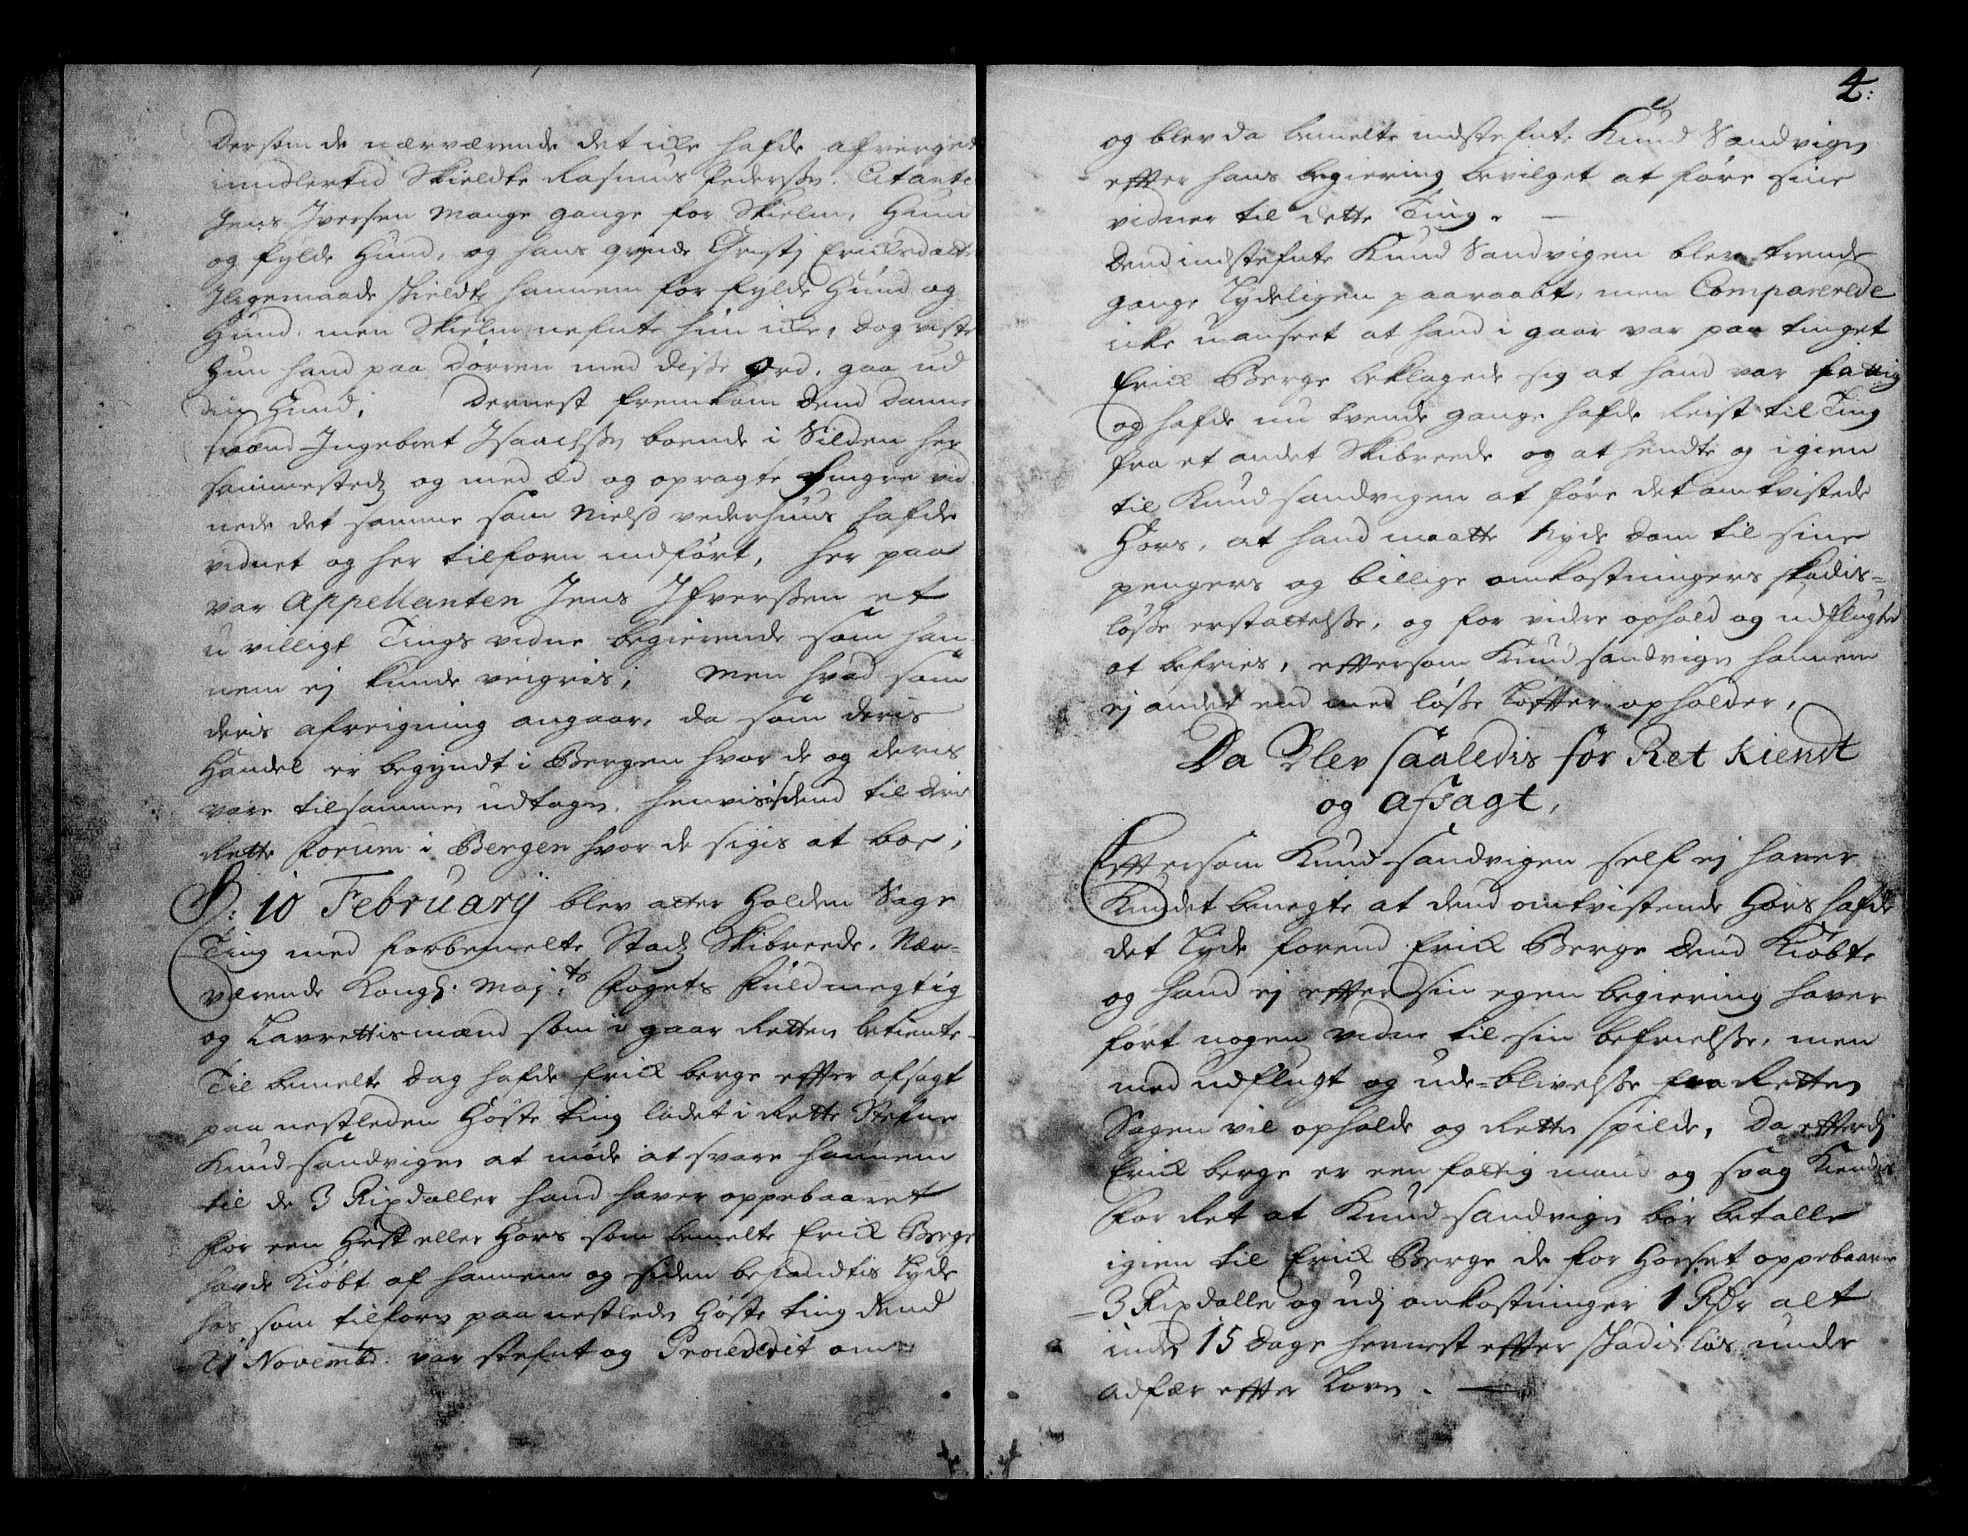 dersom de nærværende det icke hafde afverget
imidlertid Skieldte Rasmus Pedersen Citanten
Jens Iversen mange gange for Skielm, Hund
og fylde Hund, og hans qvinde Christj Ericksdatter
Iligemaade skieldte hannem for fylde Hund og
Hund, men Skielm nefnte hun icke, dog viste
hun hand paa dørren med disse Ord, gaa ud
din Hund; Dernest fremkom dend danne
mand Ingebret Isaachsen boende i Silden her
sammesteds og med Ed og opragte fingre vid
nede det samme som Niels Vederhuus hafde
vidnet og her tilforn indført, her paa
var Appellanten Jens Ifverssen et
u villigt Tings vidne begierende som han
nem ej kunde veigris; Men hvad som
deris afreigning angaar, da som deris
Handel er begyndt i Bergen hvor de og deris
vare tilsammen udtagen, henvisis dend til deris
Rette forum i Bergen hvor de sigis at boe;
D: 10 February blev atter Holden Sage
Ting med forbemelte Stads Skibreede, Nær-
værende Kongl: Maj:ts fogets fuldmegtig
og Lavrettismænd som i gaar Retten betiente.
Til bemelte dag hafde Erick berge effter afsagt
paa nestleden Høste ting ladet i Rette Stefne
Knud sandvigen at møde at svare hannem
til de 3 Rixdaller hand haver oppebaaret
for een Hest eller Hors som bemelte Erick Berge
havde Kiøbt af hannem og siden befandtis Lyde
hos, som tilforn paa nestleden Høste ting dend
21 Novembr: var stefnt og Procederit om
4:
og blev da bemelte indstefnte Knud Sandvigen
effter hans begiering bevilget at føre sine
vidner til dette Ting.
Dend indstefnte Knud Sandvigen blev trende
gange Lydeligen paaraabt, men Comparerede
icke uanseet at hand i gaar var paa tinget
Erick Berge beklagede sig at hand var fattig
og hafde nu tvende gange hafde Reist til Ting
fra et andet Skibreede og at hendte og igien
til Knud sandvigen at føre det omtvistede
Hors, at hand maatte Nyde dom til sine
pengers og billige omkostningers skadis-
løsse erstattelsse, og for vidre ophold og udflugter
at befries, effersom Knud sandvigen hannem
ej andet end med løsse Løffter opholder,
Da Blev saaledis for Ret kiendt
og afsagt,
Effersom Knud sandvigen self ej haver
Kundet benegte at dend omtvistende Hors hafde
det Lyde forend Erick Berge dend Kiøbte
og hand ej effter sin egen begiering haver
ført nogen vidne til sin befrielsse, men
med udflugt og ude-blivelsse fra Retten
Sagen vil opholde og Retten spilde, Da efferdj
Erick berge er een fattig mand og svag Kiendis
for Ret at Knud sandvigen bør betalle
igien til Erick Berge de for Horset oppebaarne
3 Rixdaller og udj omkostninger 1 Rdr alt
inden 15 dage hernest effter skadisløs under
adfær effter Loven.